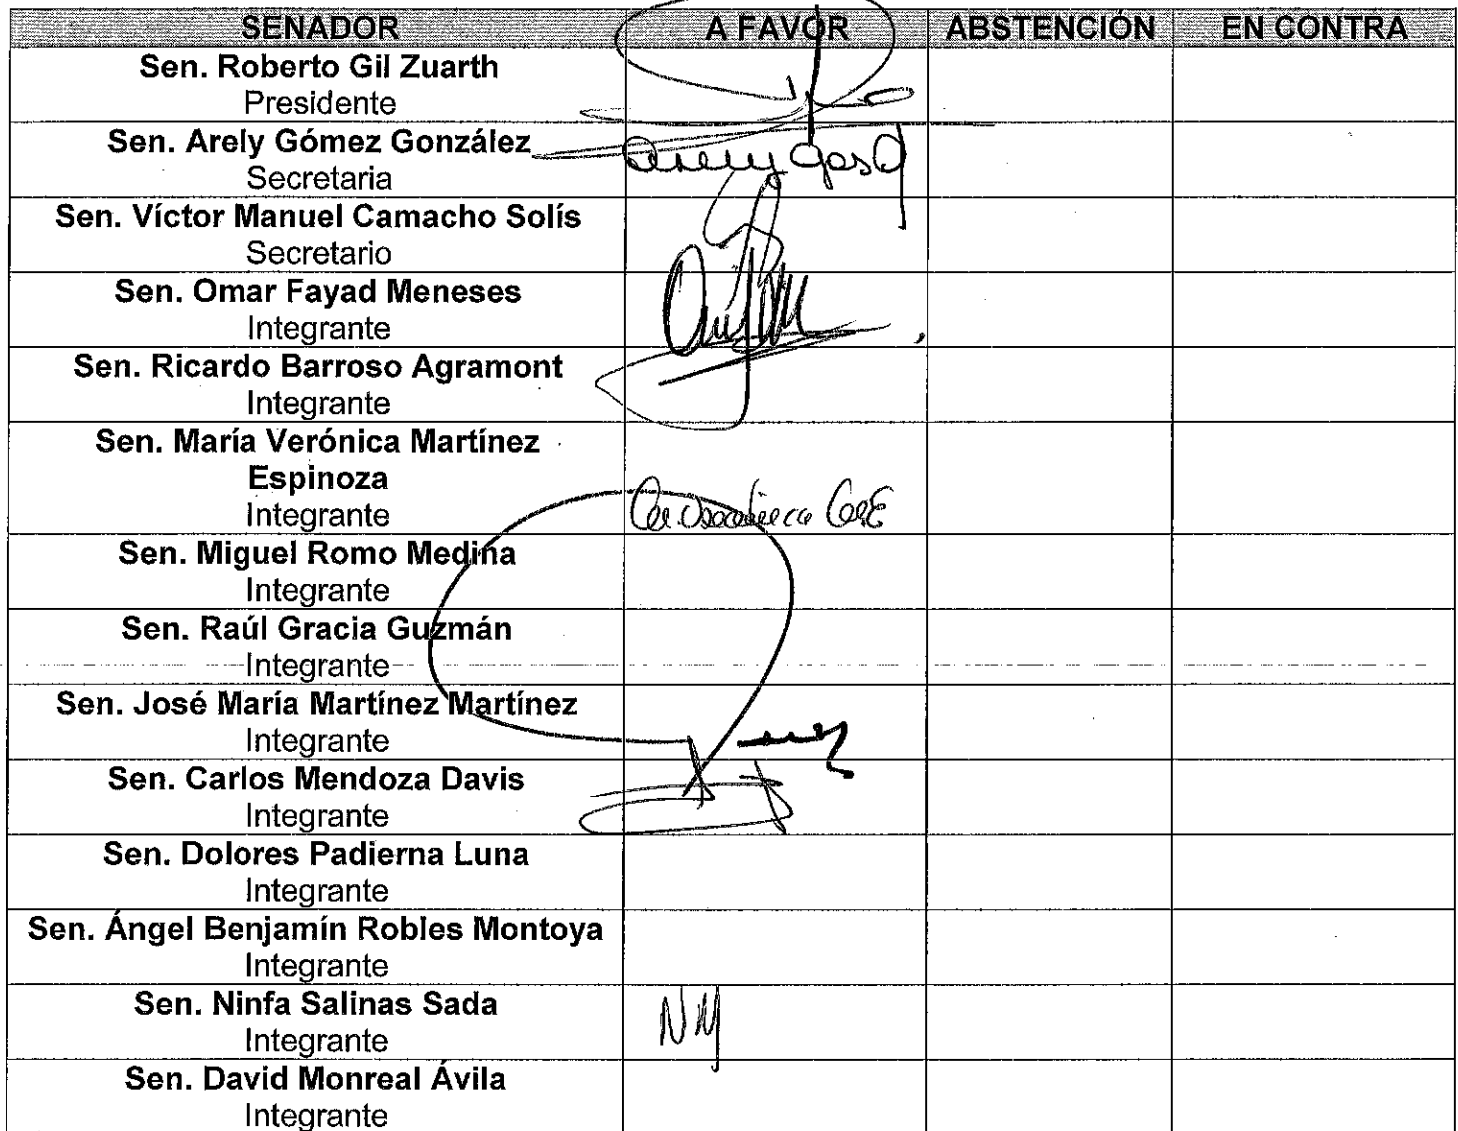 SENADOR A FAVOR ABSTENCIÓN EN CONTRA
Sen. Roberto Gil Zuarth
Presidente
Sen. Arely Gómez González
Secretaria
Sen. Víctor Manuel Camacho Solís
Secretario
Sen. Omar Fayad Meneses
Integrante
Sen. Ricardo Barroso Agramont
Integrante
Sen. María Verónica Martínez
Espinoza
Integrante
Sen. Miguel Romo Medina
Integrante
Sen. Raúl Gracia Guzmán
Integrante
Sen. José María Martínez Martínez
Integrante
Sen. Carlos Mendoza Davis
Integrante
Sen. Dolores Padierna Luna
Integrante
Sen. Ángel Benjamín Robles Montoya
Integrante
Sen. Ninfa Salinas Sada
Integrante
Sen. David Monreal Ávila
Integrante